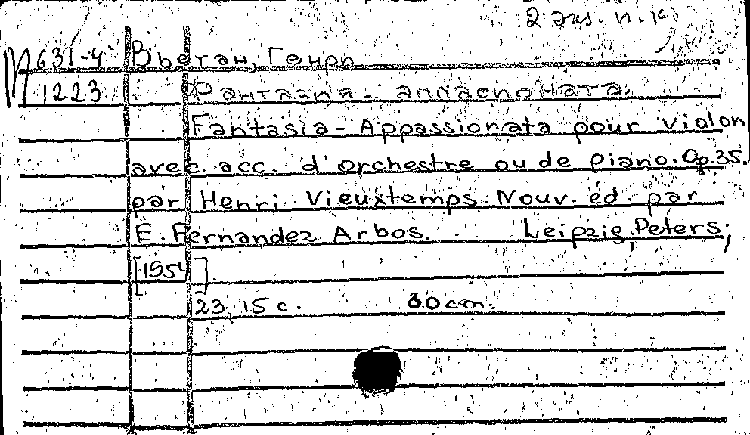 2 экз. н.к.
М631-4 Вьетан, Генри
1223 Фантазия-аппасионата.
Fantasia-Appassionata pour violon
avec acc. d'orchestre ou de piano. Op.35.
par Henri Vieuxtemps. Nouv. ed. par
E. Fernandez Arbos. Leipzig, Peters,
[195
23, 15 c. 30 cm.